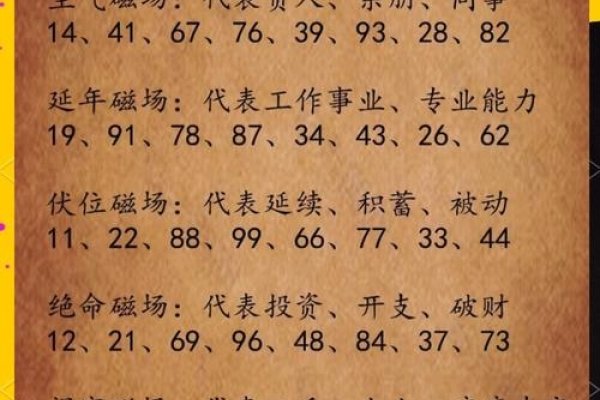 磁场：代表贵人、亲朋、同事
14、41、67、76、39、93、28、82
延年磁场：代表工作事业、专业能力
19、91、78、87、34、43、26、62
伏位磁场：代表延续、积蓄、被动
11、22、88、99、66、77、33、44
绝命磁场：代表投资、开支、破财
12、21、69、96、48、84、37、73